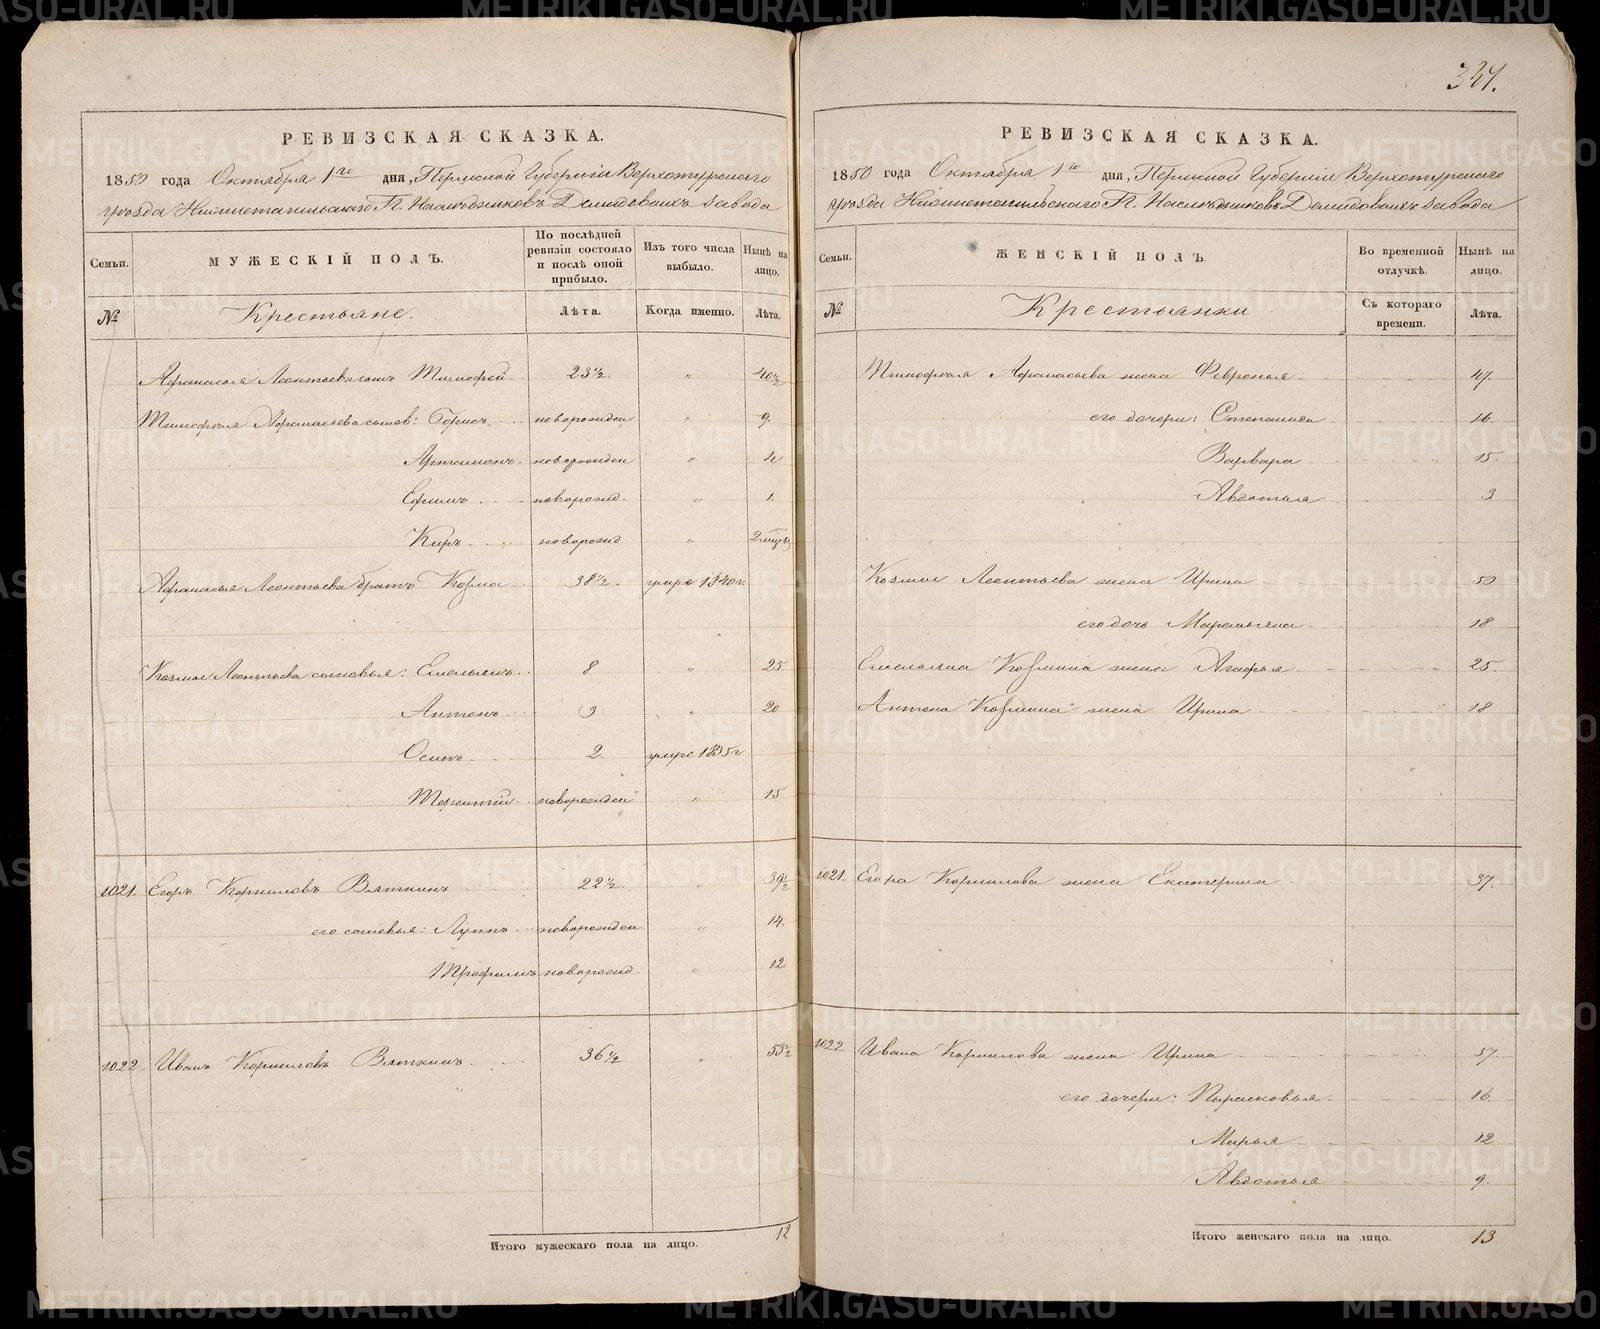 РЕВИЗСКАЯ СКАЗКА.
1850 года Октября 1го дня, Пермской Губерніи Верхотурскаго
уѣзда Нижнетагильскаго Г. Наслѣдниковъ Демидовыхъ завода
Семьи. МУЖЕСКІЙ ПОЛЪ. По послѣдней ревизіи состояло и послѣ оной прибыло. Изъ того числа выбыло. Нынѣ на лицо.
№ Крестьяне. Лѣта. Когда именно. Лѣта.
Афанасья Леонтьева сынъ Тимофей 23½. " 40½
Тимофея Афанасьева сынов: Борисъ новорожден " 9.
Артамонъ новорожден " 4
Ефимъ новорожд. " 1.
Киръ новорожд "
Афанасья Леонтьева братъ Козма 38½. умре 1840г.
Козмы Леонтьева сыновья: Емельянъ 8 " 25
Антонъ 3 " 20
Осипъ 2. умре 1835г
Терентій новорожден " 15
1021. Егоръ Корниловъ Вяткинъ 22½. " 39½
его сыновья: Луппъ новорожден " 14.
Трофимъ новорожд. " 12
1022. Иванъ Корниловъ Вяткинъ 36½ " 53½
Итого мужескаго пола на лицо. 12
РЕВИЗСКАЯ СКАЗКА.
1850 года Октября 1го дня, Пермской Губерніи Верхотурскаго
уѣзда Нижнетагильскаго Г. Наслѣдниковъ Демидовыхъ завода
Семьи. ЖЕНСКІЙ ПОЛЪ. Во временной отлучкѣ. Нынѣ на лицо.
№ Крестьянки Съ котораго времени. Лѣта.
Тимофея Афанасьева жена Февронья 47.
его дочери: Степанида 16.
Варвара 15.
Авдотья 3
Козмы Леонтьева жена Ирина 50
его дочь Маремьяна 18
Емельяна Козмина жена Агафья 25.
Антона Козмина жена Ирина 18
1021. Егора Корнилова жена Екатерина 37.
1022 Ивана Корнилова жена Ирина 57
его дочери: Парасковья 16.
Марья 12
Авдотья 9.
Итого женскаго пола на лицо. 13
METRIKI.GASO-URAL.RU